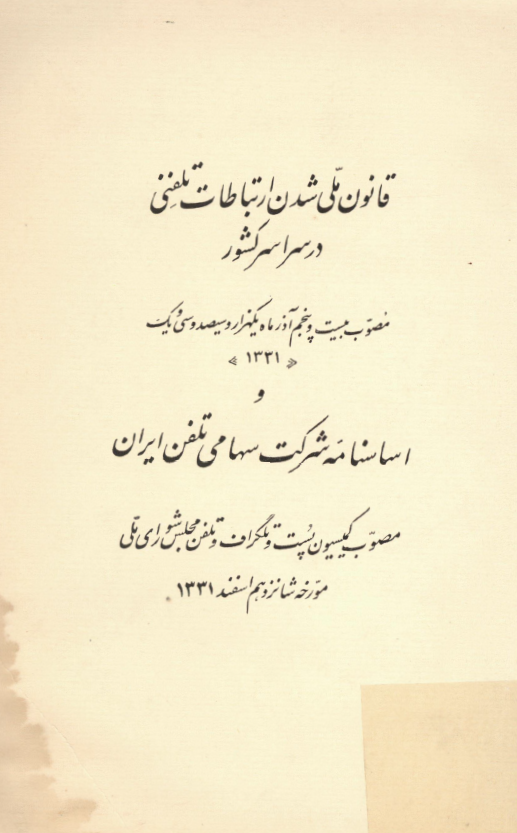 قانون ملّی شدن ارتباطات تلفنی
در سراسر کشور
مصوّب بیست و پنجم آذر ماه یکهزار و سیصد و سی و یک
« ۱۳۳۱ »
و
اساسنامه شرکت سهامی تلفن ایران
مصوّب کمیسیون پست و تلگراف و تلفن مجلس شورای ملّی
مورّخه شانزدهم اسفند ۱۳۳۱